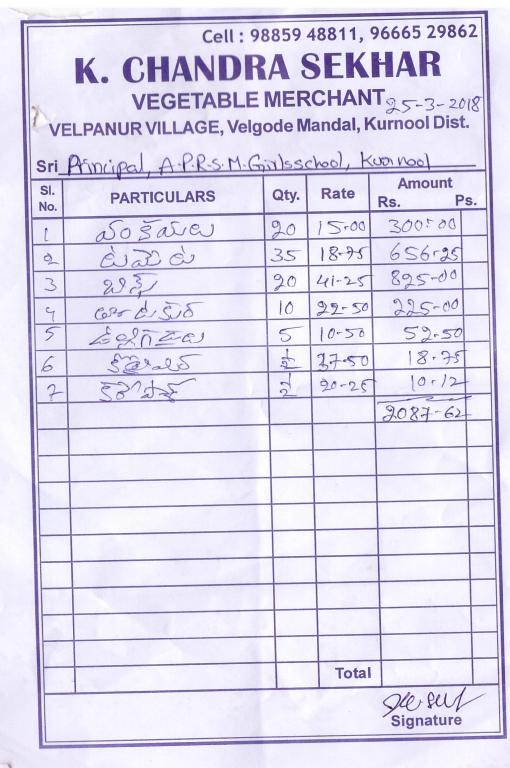 Cell : 98859 48811, 96665 29862
K. CHANDRA SEKHAR
VEGETABLE MERCHANT 25-3-2018
VELPANUR VILLAGE, Velgode Mandal, Kurnool Dist.
Sri Principal, A.P.R.S.M. Girls school, Kurnool
Sl. No. PARTICULARS Qty. Rate Amount Rs. Ps.
1 వంకాయలు 20 15-00 300-00
2 టమోటు 35 18-75 656-25
3 బీన్స్ 20 41-25 825-00
4 10 22-50 225-00
5 ఉల్లిగడ్డలు 5 10-50 52-50
6 ½ 37-50 18-75
7 ½ 20-25 10-12
2087-62
Total
Signature